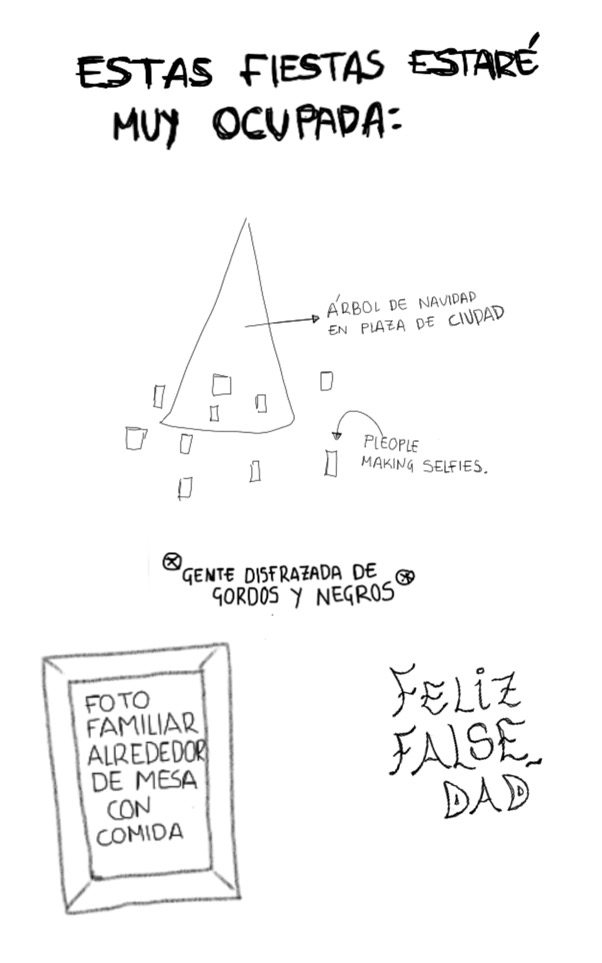 ESTAS FIESTAS ESTARÉ
MUY OCUPADA:
ÁRBOL DE NAVIDAD
EN PLAZA DE CIUDAD
PLEOPLE
MAKING SELFIES.
GENTE DISFRAZADA DE
GORDOS Y NEGROS
FOTO
FAMILIAR
ALREDEDOR
DE MESA
CON
COMIDA
FELIZ
FALSE-
DAD